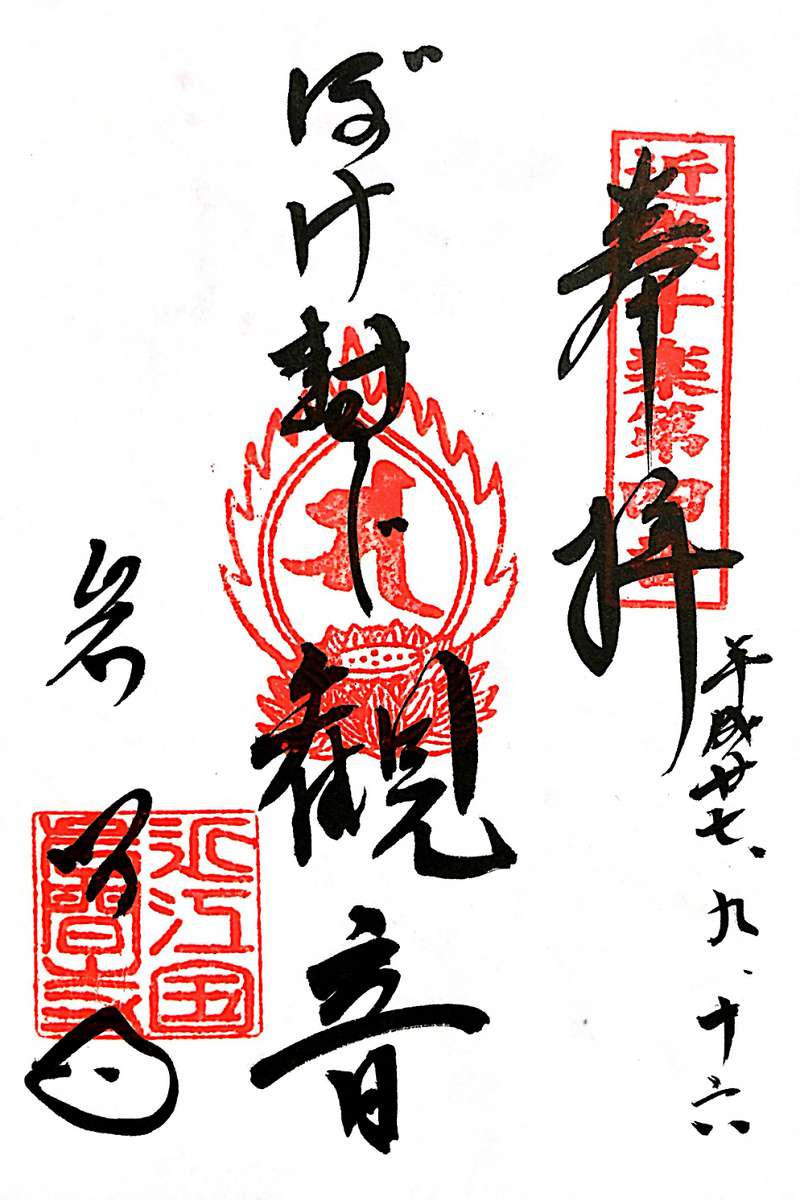 近畿十楽第四番
奉拝
平成廿七、九、十六
ぼけ封じ観音
岩間寺
近江国
岩間寺